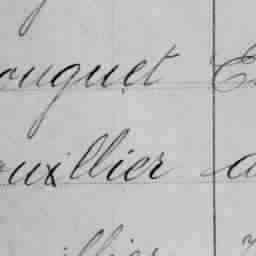 ouguet E
ouillier a
llier